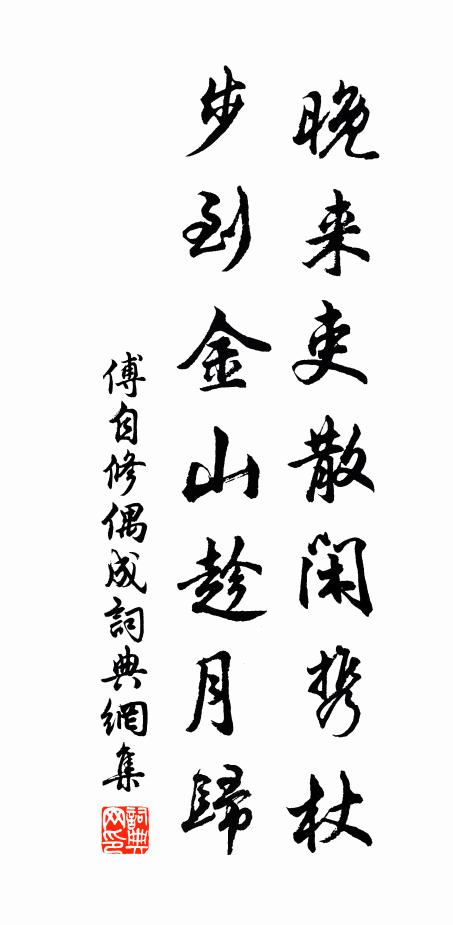 晚来吏散闲携杖
步到金山趁月歸
傅自修偶成詞典網集
詞典网印